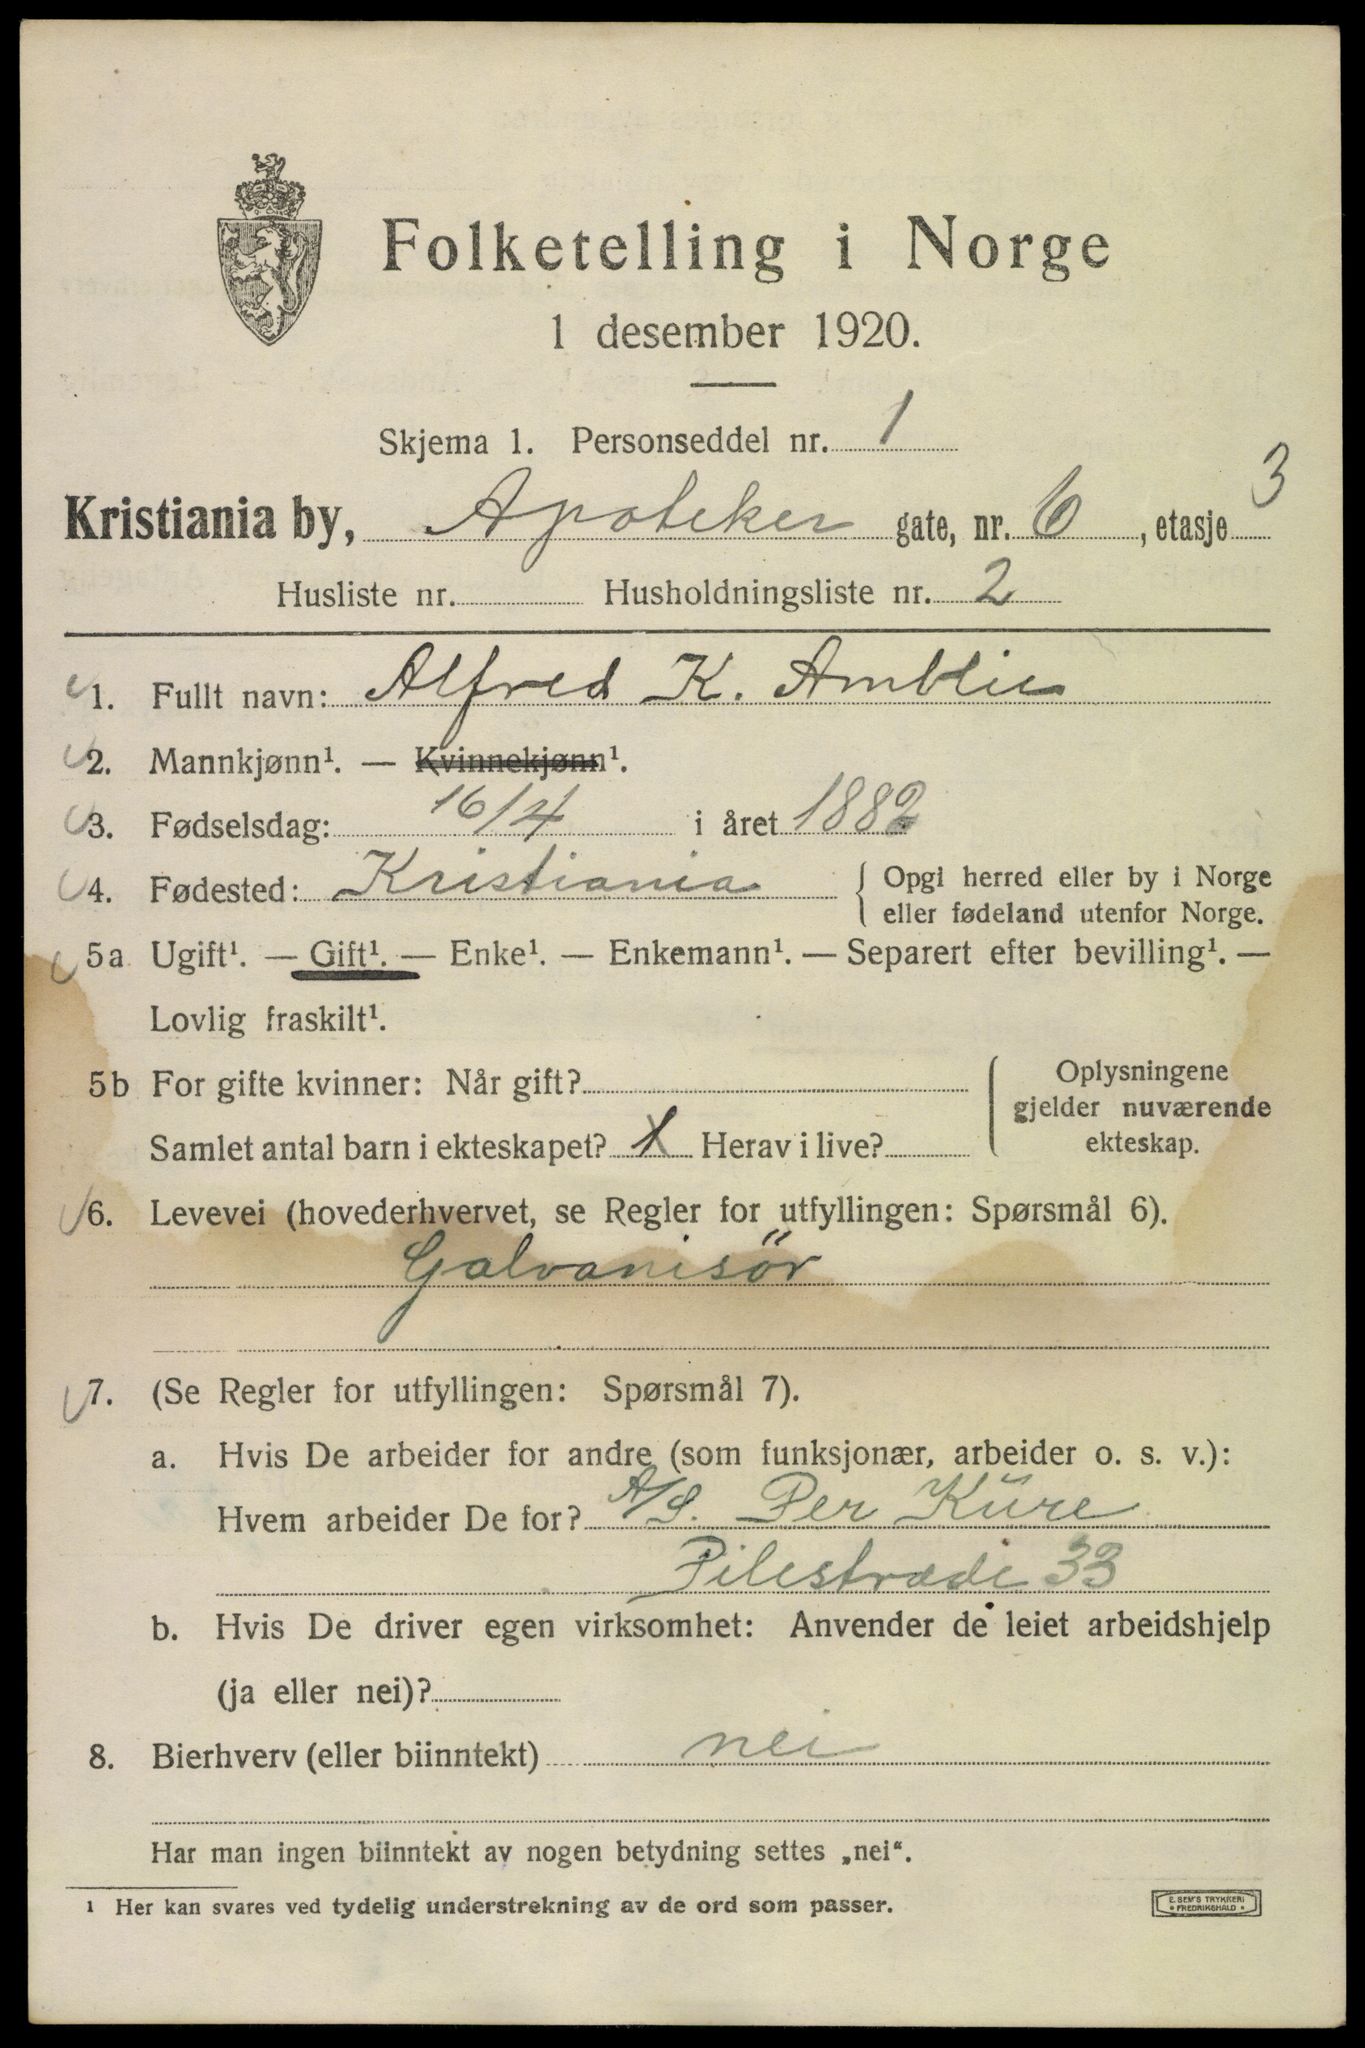 Folketelling i Norge
1 desember 1920.
Skjema 1. Personseddel nr. 1
Kristiania by, Apoteker gate, nr. 6, etasje 3
Husliste nr. Husholdningsliste nr. 2
1. Fullt navn: Alfred K. Amblie
2. Mannkjønn¹. — Kvinnekjønn¹.
3. Fødselsdag: 16/4 i året 1882
4. Fødested: Kristiania { Opgi herred eller by i Norge
eller fødeland utenfor Norge.
5a Ugift¹. — Gift¹. — Enke¹. — Enkemann¹. — Separert efter bevilling¹. —
Lovlig fraskilt¹.
5b For gifte kvinner: Når gift? { Oplysningene
gjelder nuværende
Samlet antal barn i ekteskapet? 1 Herav i live? ekteskap.
6. Levevei (hovederhvervet, se Regler for utfyllingen: Spørsmål 6).
Galvanisör
7. (Se Regler for utfyllingen: Spørsmål 7).
a. Hvis De arbeider for andre (som funksjonær, arbeider o. s. v.):
Hvem arbeider De for? A/S. Per Küre
Pilestrade 33
b. Hvis De driver egen virksomhet: Anvender de leiet arbeidshjelp
(ja eller nei)?
8. Bierhverv (eller biinntekt) nei
Har man ingen biinntekt av nogen betydning settes „nei“.
¹ Her kan svares ved tydelig understrekning av de ord som passer.
E. SEM'S TRYKKERI
FREDRIKSHALD